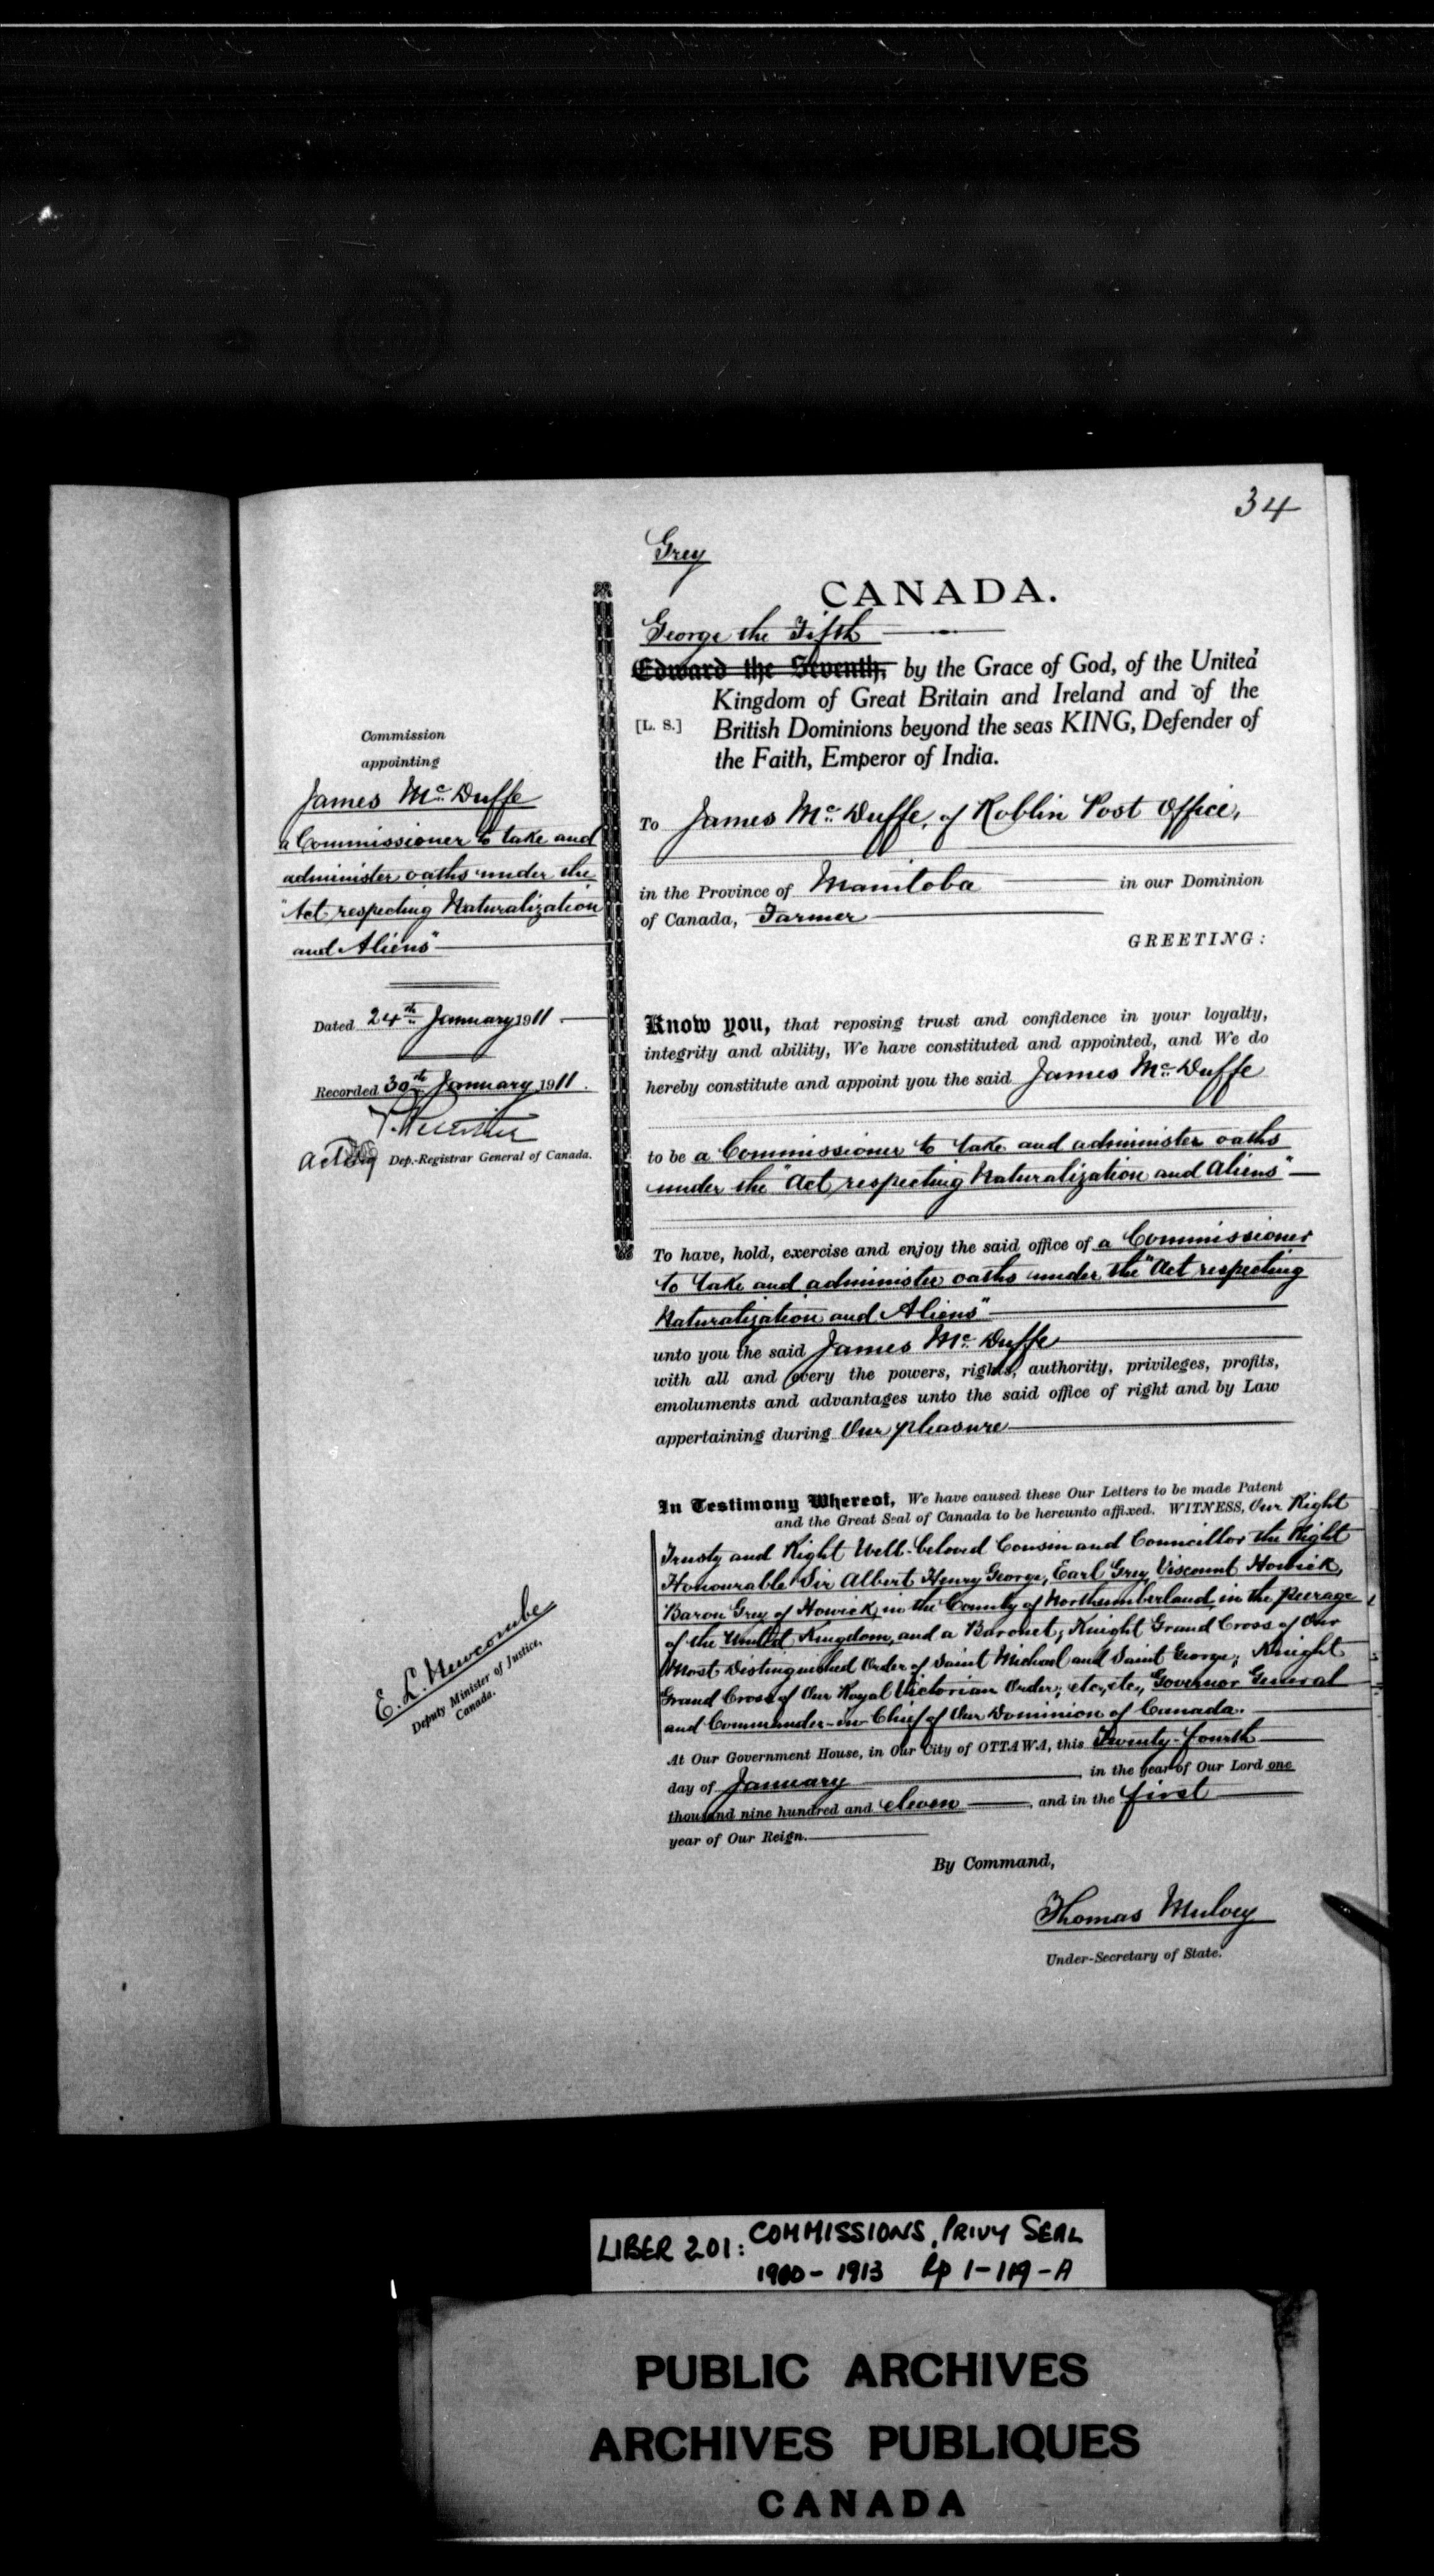 34
Grey
CANADA.
George the Fifth
Edward the Seventh, by the Grace of God, of the United
Kingdom of Great Britain and Ireland and of the
[L. S.] British Dominions beyond the seas KING, Defender of
the Faith, Emperor of India.
Commission
appointing
James Mc. Duffe
a Commissioner to take and
administer oaths under the
"Act respecting Naturalization
and Aliens"
Dated 24th January 1911.
Recorded 30th January 1911.
Acting Dep.-Registrar General of Canada.
To James Mc. Duffe, of Roblin Post Office,
in the Province of Manitoba in our Dominion
of Canada, Farmer
GREETING:
Know you, that reposing trust and confidence in your loyalty,
integrity and ability, We have constituted and appointed, and We do
hereby constitute and appoint you the said James Mc. Duffe
to be a Commissioner to take and administer oaths
under the "Act respecting Naturalization and Aliens"
To have, hold, exercise and enjoy the said office of a Commissioner
to take and administer oaths under the "Act respecting
Naturalization and Aliens"
unto you the said James Mc. Duffe
with all and every the powers, rights, authority, privileges, profits,
emoluments and advantages unto the said office of right and by Law
appertaining during Our pleasure
In Testimony Whereof, We have caused these Our Letters to be made Patent
and the Great Seal of Canada to be hereunto affixed. WITNESS, Our Right
Trusty and Right Well-beloved Cousin and Councillor the Right
Honourable Sir Albert Henry George, Earl Grey, Viscount Howick,
Baron Grey of Howick, in the County of Northumberland, in the Peerage
of the United Kingdom, and a Baronet; Knight Grand Cross of Our
Most Distinguished Order of Saint Michael and Saint George; Knight
Grand Cross of Our Royal Victorian Order; etc., etc., Governor General
and Commander-in-Chief of Our Dominion of Canada.
At Our Government House, in Our City of OTTAWA, this Twenty-fourth
day of January, in the year of Our Lord one
thousand nine hundred and eleven, and in the first
year of Our Reign.
By Command,
Thomas Mulvey
Under-Secretary of State.
E. L. Newcombe
Deputy Minister of Justice,
Canada.
LIBER 201: COMMISSIONS, PRIVY SEAL
1900 - 1913 Pp 1-119-A
PUBLIC ARCHIVES
ARCHIVES PUBLIQUES
CANADA